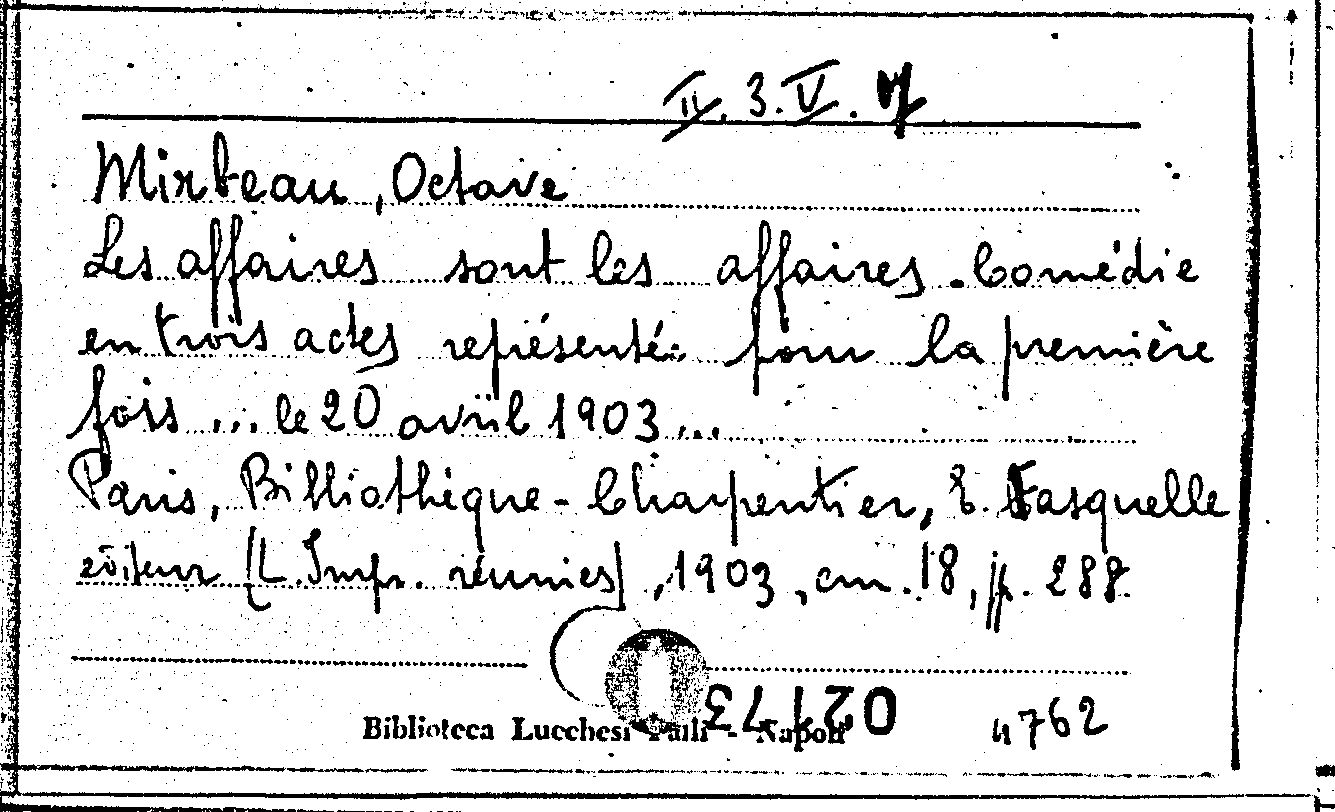 II. 3. V. 17
Mirbeau, Octave
Les affaires sont les affaires. Comédie
en trois actes représentée pour la première
fois ... le 20 avril 1903 ...
Paris, Bibliothèque-Charpentier, E. Fasquelle
éditeur [L. Impr. réunies], 1903, cm. 18, pp. 288.
02173
Biblioteca Lucchesi Palli - Napoli 4762